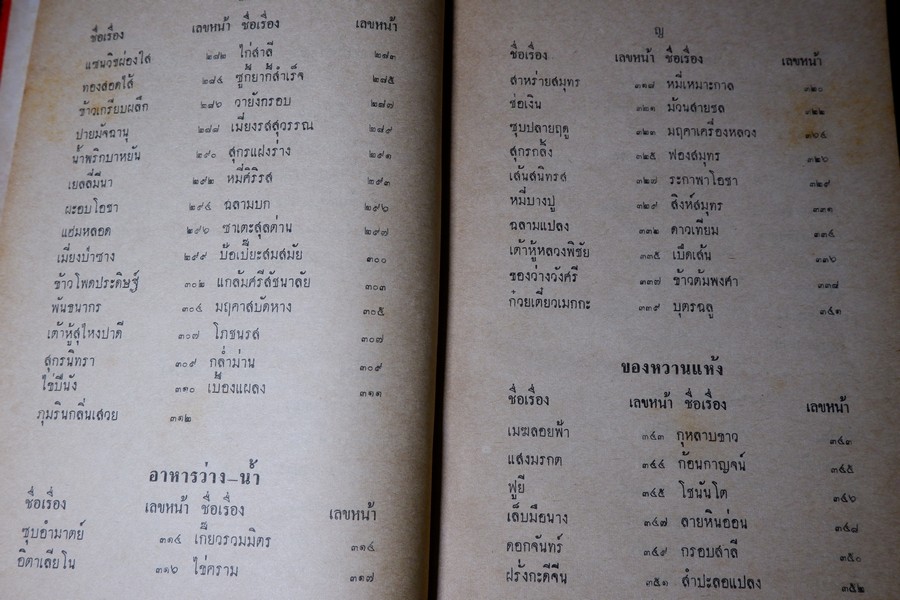 ชื่อเรื่อง เลขหน้า ชื่อเรื่อง เลขหน้า
แซนวิชผ่องใส ๒๘๒ ไก่สาลี ๒๘๑
ทองสอดไส้ ๒๘๔ ซูกี้ยากี้สำเร็จ ๒๘๕
ข้าวเกรียบผลึก ๒๘๖ วายังกรอบ ๒๘๗
ปายมัจฉานุ ๒๘๘ เมี่ยงรสสุวรรณ ๒๘๙
น้ำพริกบาหยัน ๒๙๐ สุกรแฝงร่าง ๒๙๑
เยลลี่มีนา ๒๙๒ หมี่ศิริรส ๒๙๓
ผะอบโอชา ๒๙๔ ฉลามบก ๒๙๖
แฮ่มหลอด ๒๙๖ ซาเตะสุลต่าน ๒๙๗
เมี่ยงบ้าซาง ๒๙๙ ป้อเปี๊ยะสมสมัย ๓๐๐
ข้าวโพดประดิษฐ์ ๓๐๒ แกล้มศรีสัชนาลัย ๓๐๓
พันธนากร ๓๐๔ มฤคาสบัดหาง ๓๐๕
เต้าหู้สุไหงปาดี ๓๐๗ โภชนรส ๓๐๗
สุกรนิทรา ๓๐๙ กล่ำม่าน ๓๐๙
ไข่ปีนัง ๓๑๐ เบื้องแผลง ๓๑๑
ภุมรินกลิ่นเสวย ๓๑๒
อาหารว่าง–น้ำ
ชื่อเรื่อง เลขหน้า ชื่อเรื่อง เลขหน้า
ซุบอำมาตย์ ๓๑๔ เกี๊ยวรวมมิตร ๓๑๔
อิตาเลียโน ๓๑๖ ไข่คราม ๓๑๗
ญ
ชื่อเรื่อง เลขหน้า ชื่อเรื่อง เลขหน้า
สาหร่ายสมุทร ๓๑๘ หมี่เหมาะกาล ๓๒๐
ช่อเงิน ๓๒๑ ม้วนสายชล ๓๒๒
ซุบปลายฤดู ๓๒๓ มฤคาเครื่องหลวง ๓๒๔
สุกรกลิ้ง ๓๒๕ ฟองสมุทร ๓๒๖
เส้นสนิทรส ๓๒๗ ระกาพาโอชา ๓๒๙
หมี่บางปู ๓๒๙ สิงห์สมุทร ๓๓๑
ฉลามแปลง ๓๓๒ ดาวเทียม ๓๓๔
เต้าหู้หลวงพิชัย ๓๓๕ เบ็ดเส้น ๓๓๖
ของว่างวังศรี ๓๓๗ ข้าวต้มพงศา ๓๓๘
ก๋วยเตี๋ยวเมกกะ ๓๓๙ บุตรฉลู ๓๔๑
ของหวานแห้ง
ชื่อเรื่อง เลขหน้า ชื่อเรื่อง เลขหน้า
เมฆลอยฟ้า ๓๔๓ กุหลาบขาว ๓๔๓
แสงมรกต ๓๔๔ ก้อนกาญจน์ ๓๔๕
ฟูยี ๓๔๕ โซนันโต ๓๔๖
เล็บมือนาง ๓๔๗ ลายหินอ่อน ๓๔๘
ดอกจันทร์ ๓๔๙ กรอบสาลี ๓๕๐
ฝรั่งกะดีจีน ๓๕๑ สำปะลอแปลง ๓๕๒